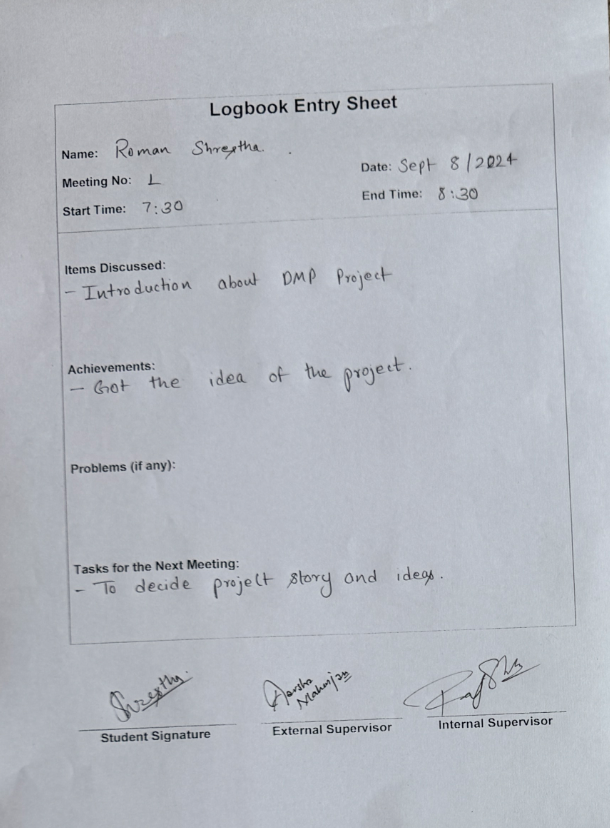 Logbook Entry Sheet
Name: Roman Shrestha.
Date: Sept 8/2024
Meeting No: 1
End Time: 8:30
Start Time: 7:30
Items Discussed:
- Introduction about DMP Project
Achievements:
- Got the idea of the project.
Problems (if any):
Tasks for the Next Meeting:
- To decide project story and ideas.
Shrestha
Harsha
Maharjan
Student Signature
External Supervisor
Internal Supervisor